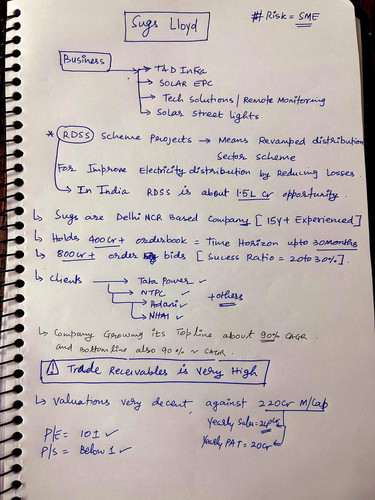 Sugs Lloyd
# Risk = SME
Business
T&D Infra
SOLAR EPC
Tech Solutions / Remote Monitoring
Solar Street lights
* RDSS Scheme Projects → Means Revamped distribution
Sector scheme
For Improve Electricity distribution by Reducing Losses.
→ In India RDSS is about 1.5L Cr opportunity.
↳ Sugs are Delhi NCR Based Company [15Y+ Experienced]
↳ Holds 400Cr+ orderbook = Time Horizon upto 30months
↳ 800Cr+ order bids [Sucess Ratio = 20 to 30%].
↳ Clients → Tata Power ✓
→ NTPC ✓
→ Adani ✓
→ NHAI ✓
+others
↳ Company Growing its Topline about 90% CAGR
and Bottomline also 90% ~ CAGR.
⚠ Trade Receivables is Very High
↳ Valuations very decent, against 220Cr M/Cap
Yearly Sales =
Yearly PAT = 20Cr
P/E = 10 ✓
P/S = Below 1 ✓